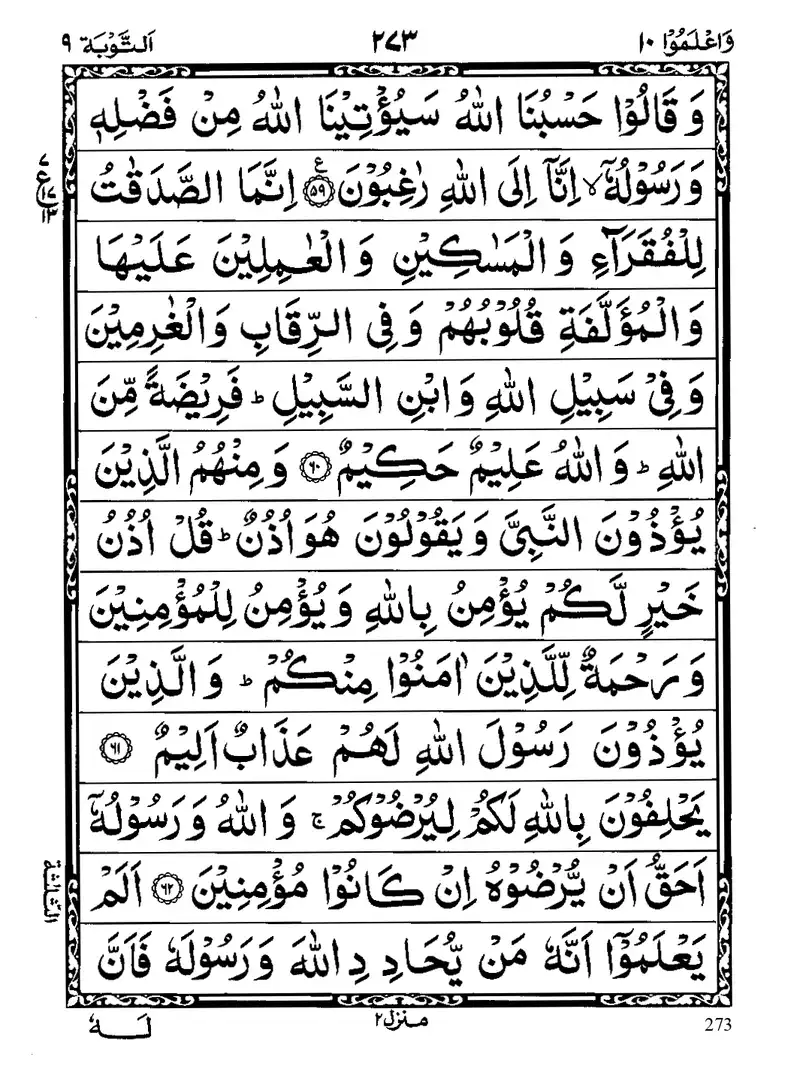 وَاعْلَمُوْٓا ١٠ ٢٧٣ اَلتَّوْبَة ٩
وَ قَالُوْا حَسْبُنَا اللّٰهُ سَيُؤْتِيْنَا اللّٰهُ مِنْ فَضْلِهٖ
وَ رَسُوْلُهٗۤ ۙ اِنَّاۤ اِلَى اللّٰهِ رٰغِبُوْنَ ﴿٥٩﴾ ع اِنَّمَا الصَّدَقٰتُ
٧ ع ١٧ ١٣
لِلْفُقَرَآءِ وَ الْمَسٰكِيْنِ وَ الْعٰمِلِيْنَ عَلَيْهَا
وَ الْمُؤَلَّفَةِ قُلُوْبُهُمْ وَ فِي الرِّقَابِ وَ الْغٰرِمِيْنَ
وَ فِيْ سَبِيْلِ اللّٰهِ وَ ابْنِ السَّبِيْلِ ؕ فَرِيْضَةً مِّنَ
اللّٰهِ ؕ وَ اللّٰهُ عَلِيْمٌ حَكِيْمٌ ﴿٦٠﴾ وَ مِنْهُمُ الَّذِيْنَ
يُؤْذُوْنَ النَّبِيَّ وَ يَقُوْلُوْنَ هُوَ اُذُنٌ ؕ قُلْ اُذُنُ
خَيْرٍ لَّكُمْ يُؤْمِنُ بِاللّٰهِ وَ يُؤْمِنُ لِلْمُؤْمِنِيْنَ
وَ رَحْمَةٌ لِّلَّذِيْنَ اٰمَنُوْا مِنْكُمْ ؕ وَ الَّذِيْنَ
يُؤْذُوْنَ رَسُوْلَ اللّٰهِ لَهُمْ عَذَابٌ اَلِيْمٌ ﴿٦١﴾
يَحْلِفُوْنَ بِاللّٰهِ لَكُمْ لِيُرْضُوْكُمْ ۚ وَ اللّٰهُ وَ رَسُوْلُهٗۤ
اَحَقُّ اَنْ يُّرْضُوْهُ اِنْ كَانُوْا مُؤْمِنِيْنَ ﴿٦٢﴾ اَلَمْ
الثلثة
يَعْلَمُوْۤا اَنَّهٗ مَنْ يُّحَادِدِ اللّٰهَ وَ رَسُوْلَهٗ فَاَنَّ
273 منزل ٢ لَهٗ